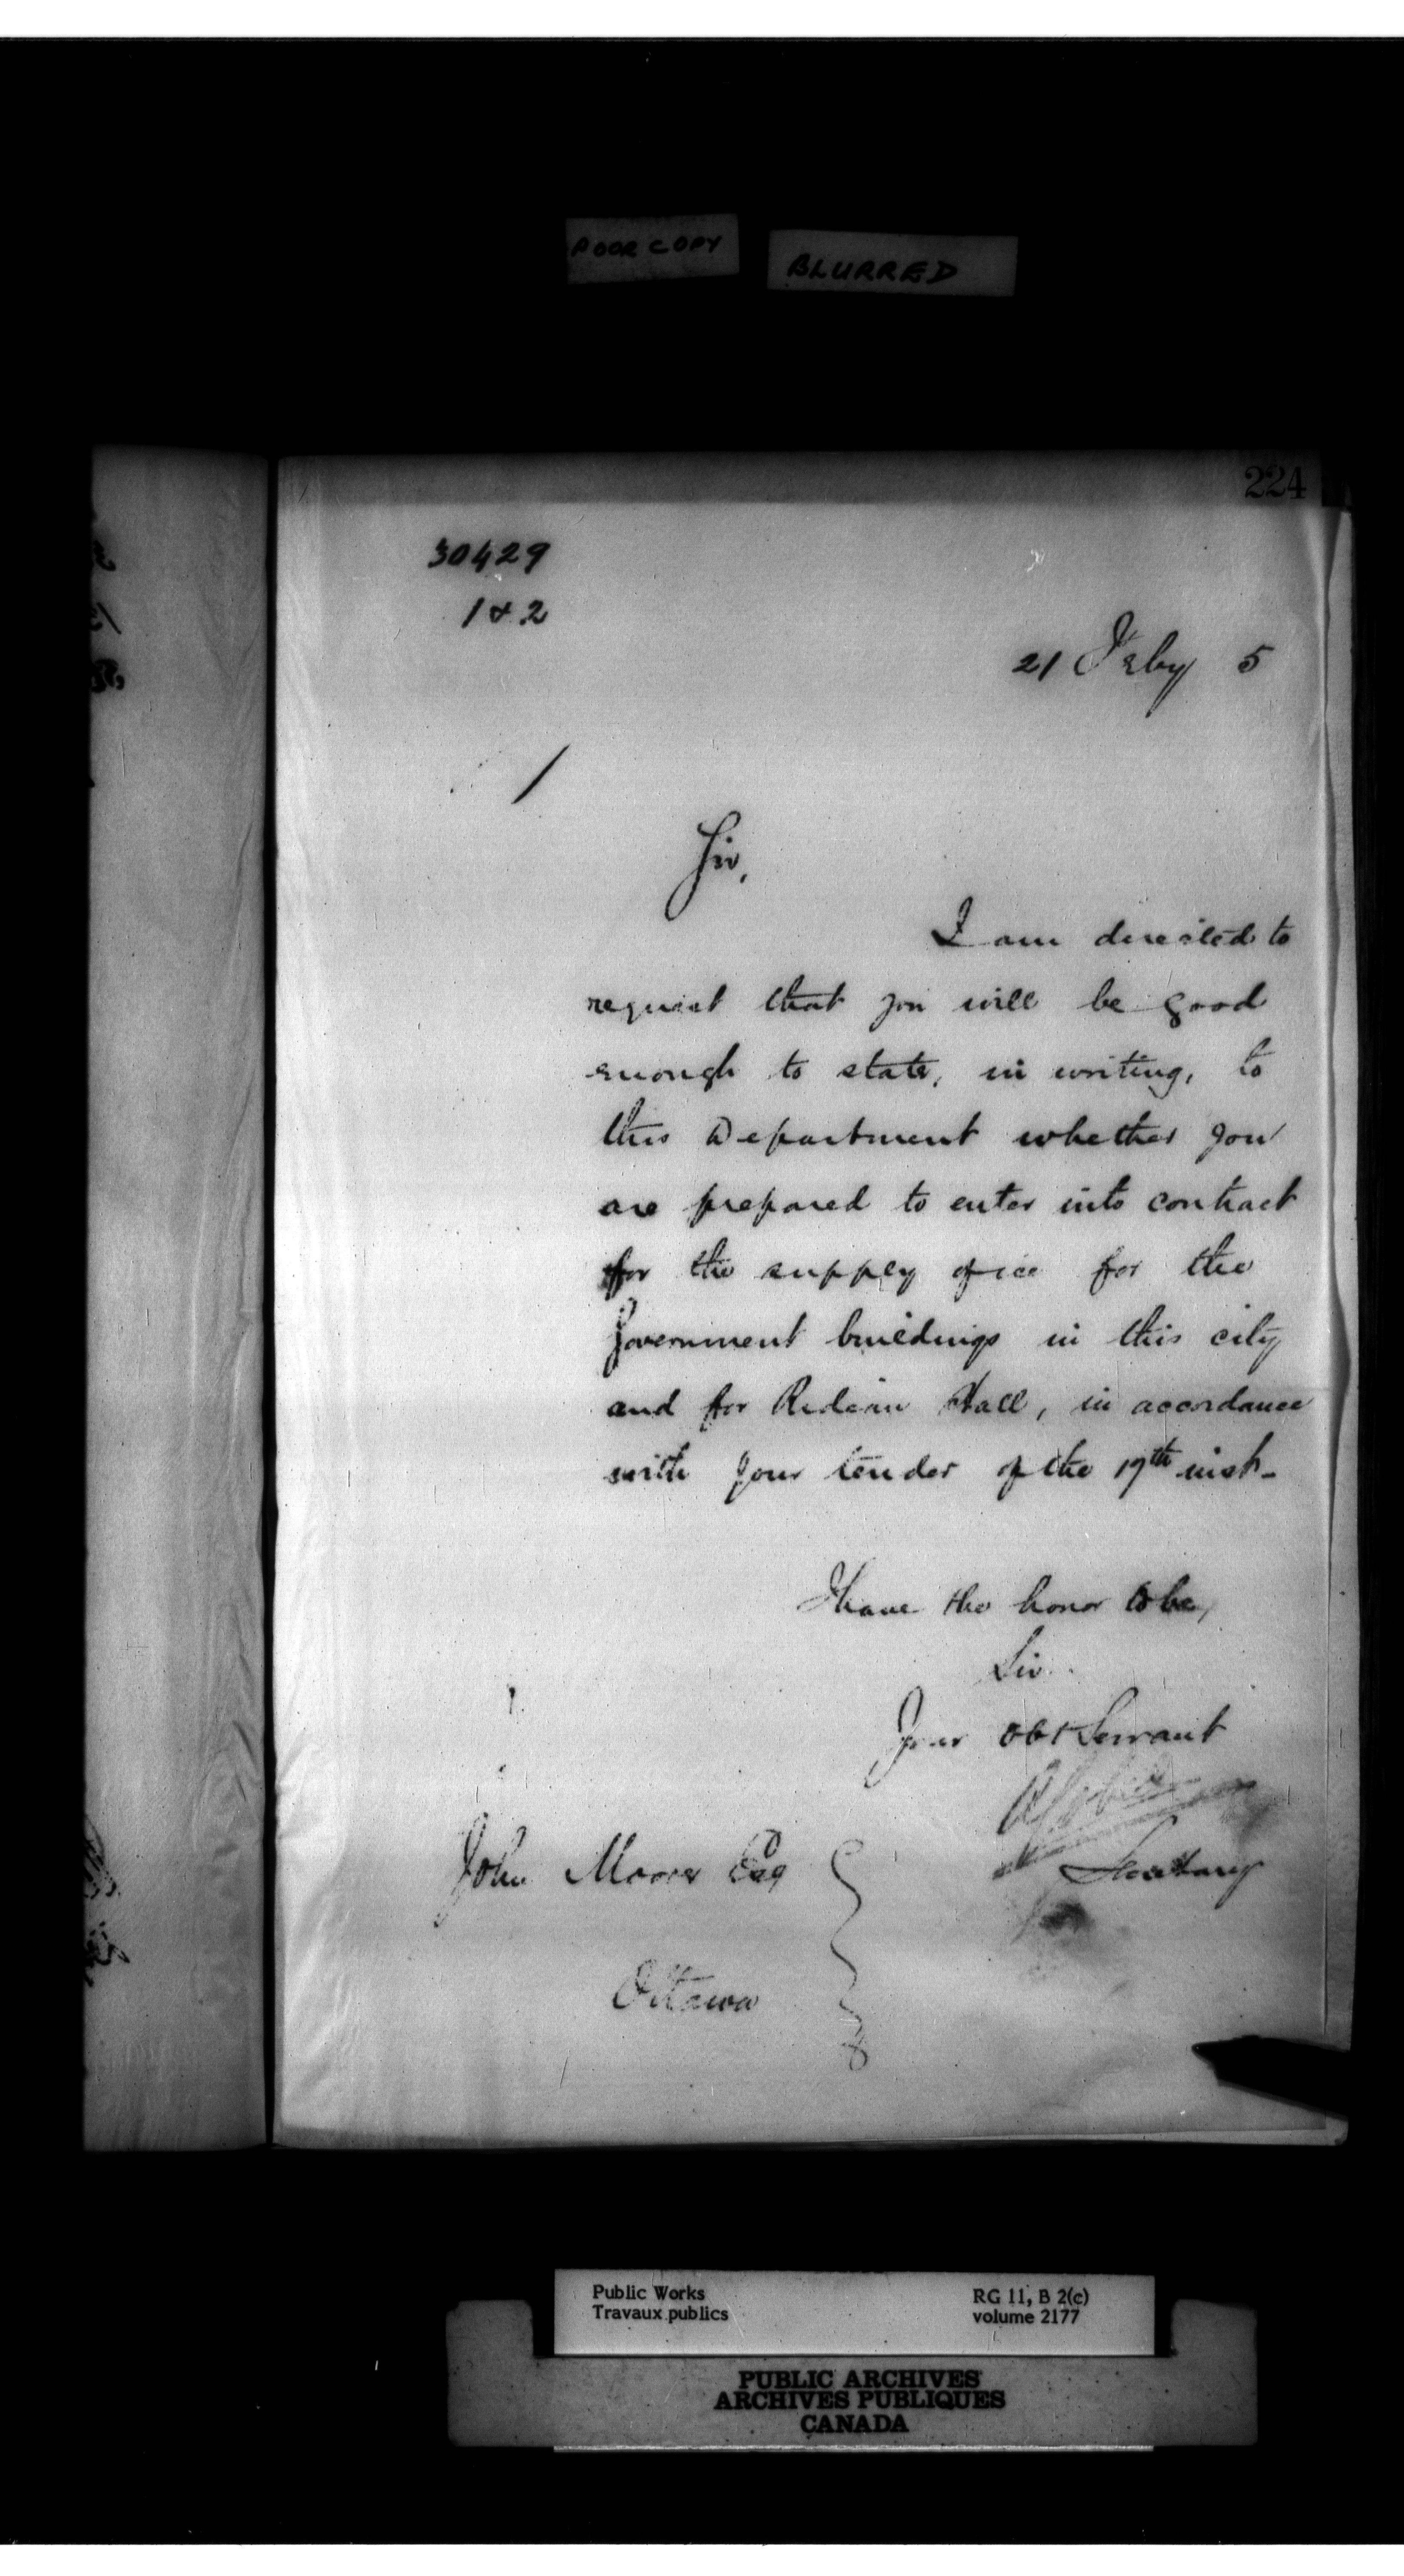 POOR COPY
BLURRED
224
30429
1 & 2
21 Feby 5
Sir,
I am directed to
request that you will be good
enough to state, in writing, to
this Department whether you
are prepared to enter into contract
for the supply of ice for the
Government buildings in this city
and for Rideau Hall, in accordance
with your tender of the 17th inst-
I have the honor to be,
Sir
Your obt Servant
Secretary
John Moore Esq
Ottawa
Public Works
Travaux publics
RG 11, B 2(c)
volume 2177
PUBLIC ARCHIVES
ARCHIVES PUBLIQUES
CANADA